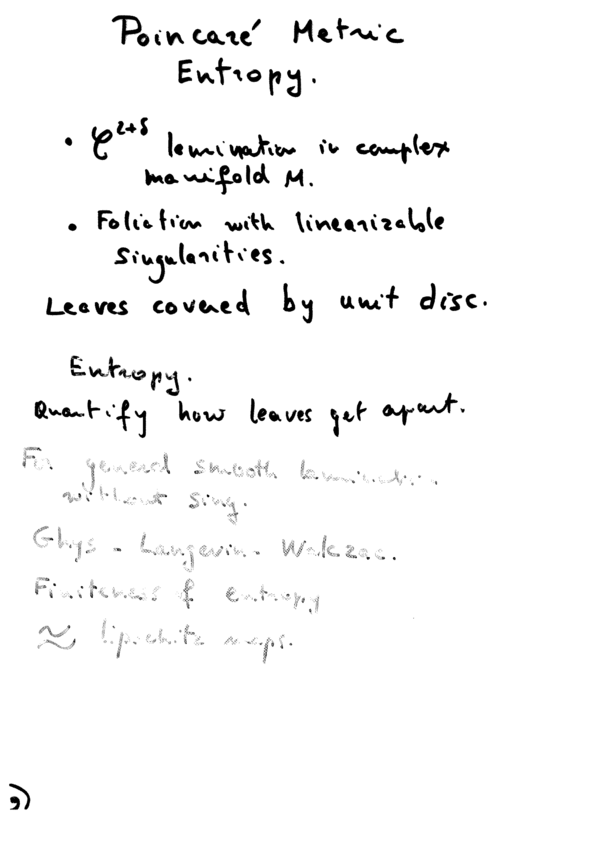 Poincaré Metric
Entropy.
• C^{2+δ} lamination in complex
manifold M.
• Foliation with linearizable
singularities.
Leaves covered by unit disc.
Entropy.
Quantify how leaves get apart.
For general smooth lamination
without sing.
Ghys - Langevin - Walczac.
Finiteness of entropy
≈ lipschitz maps.